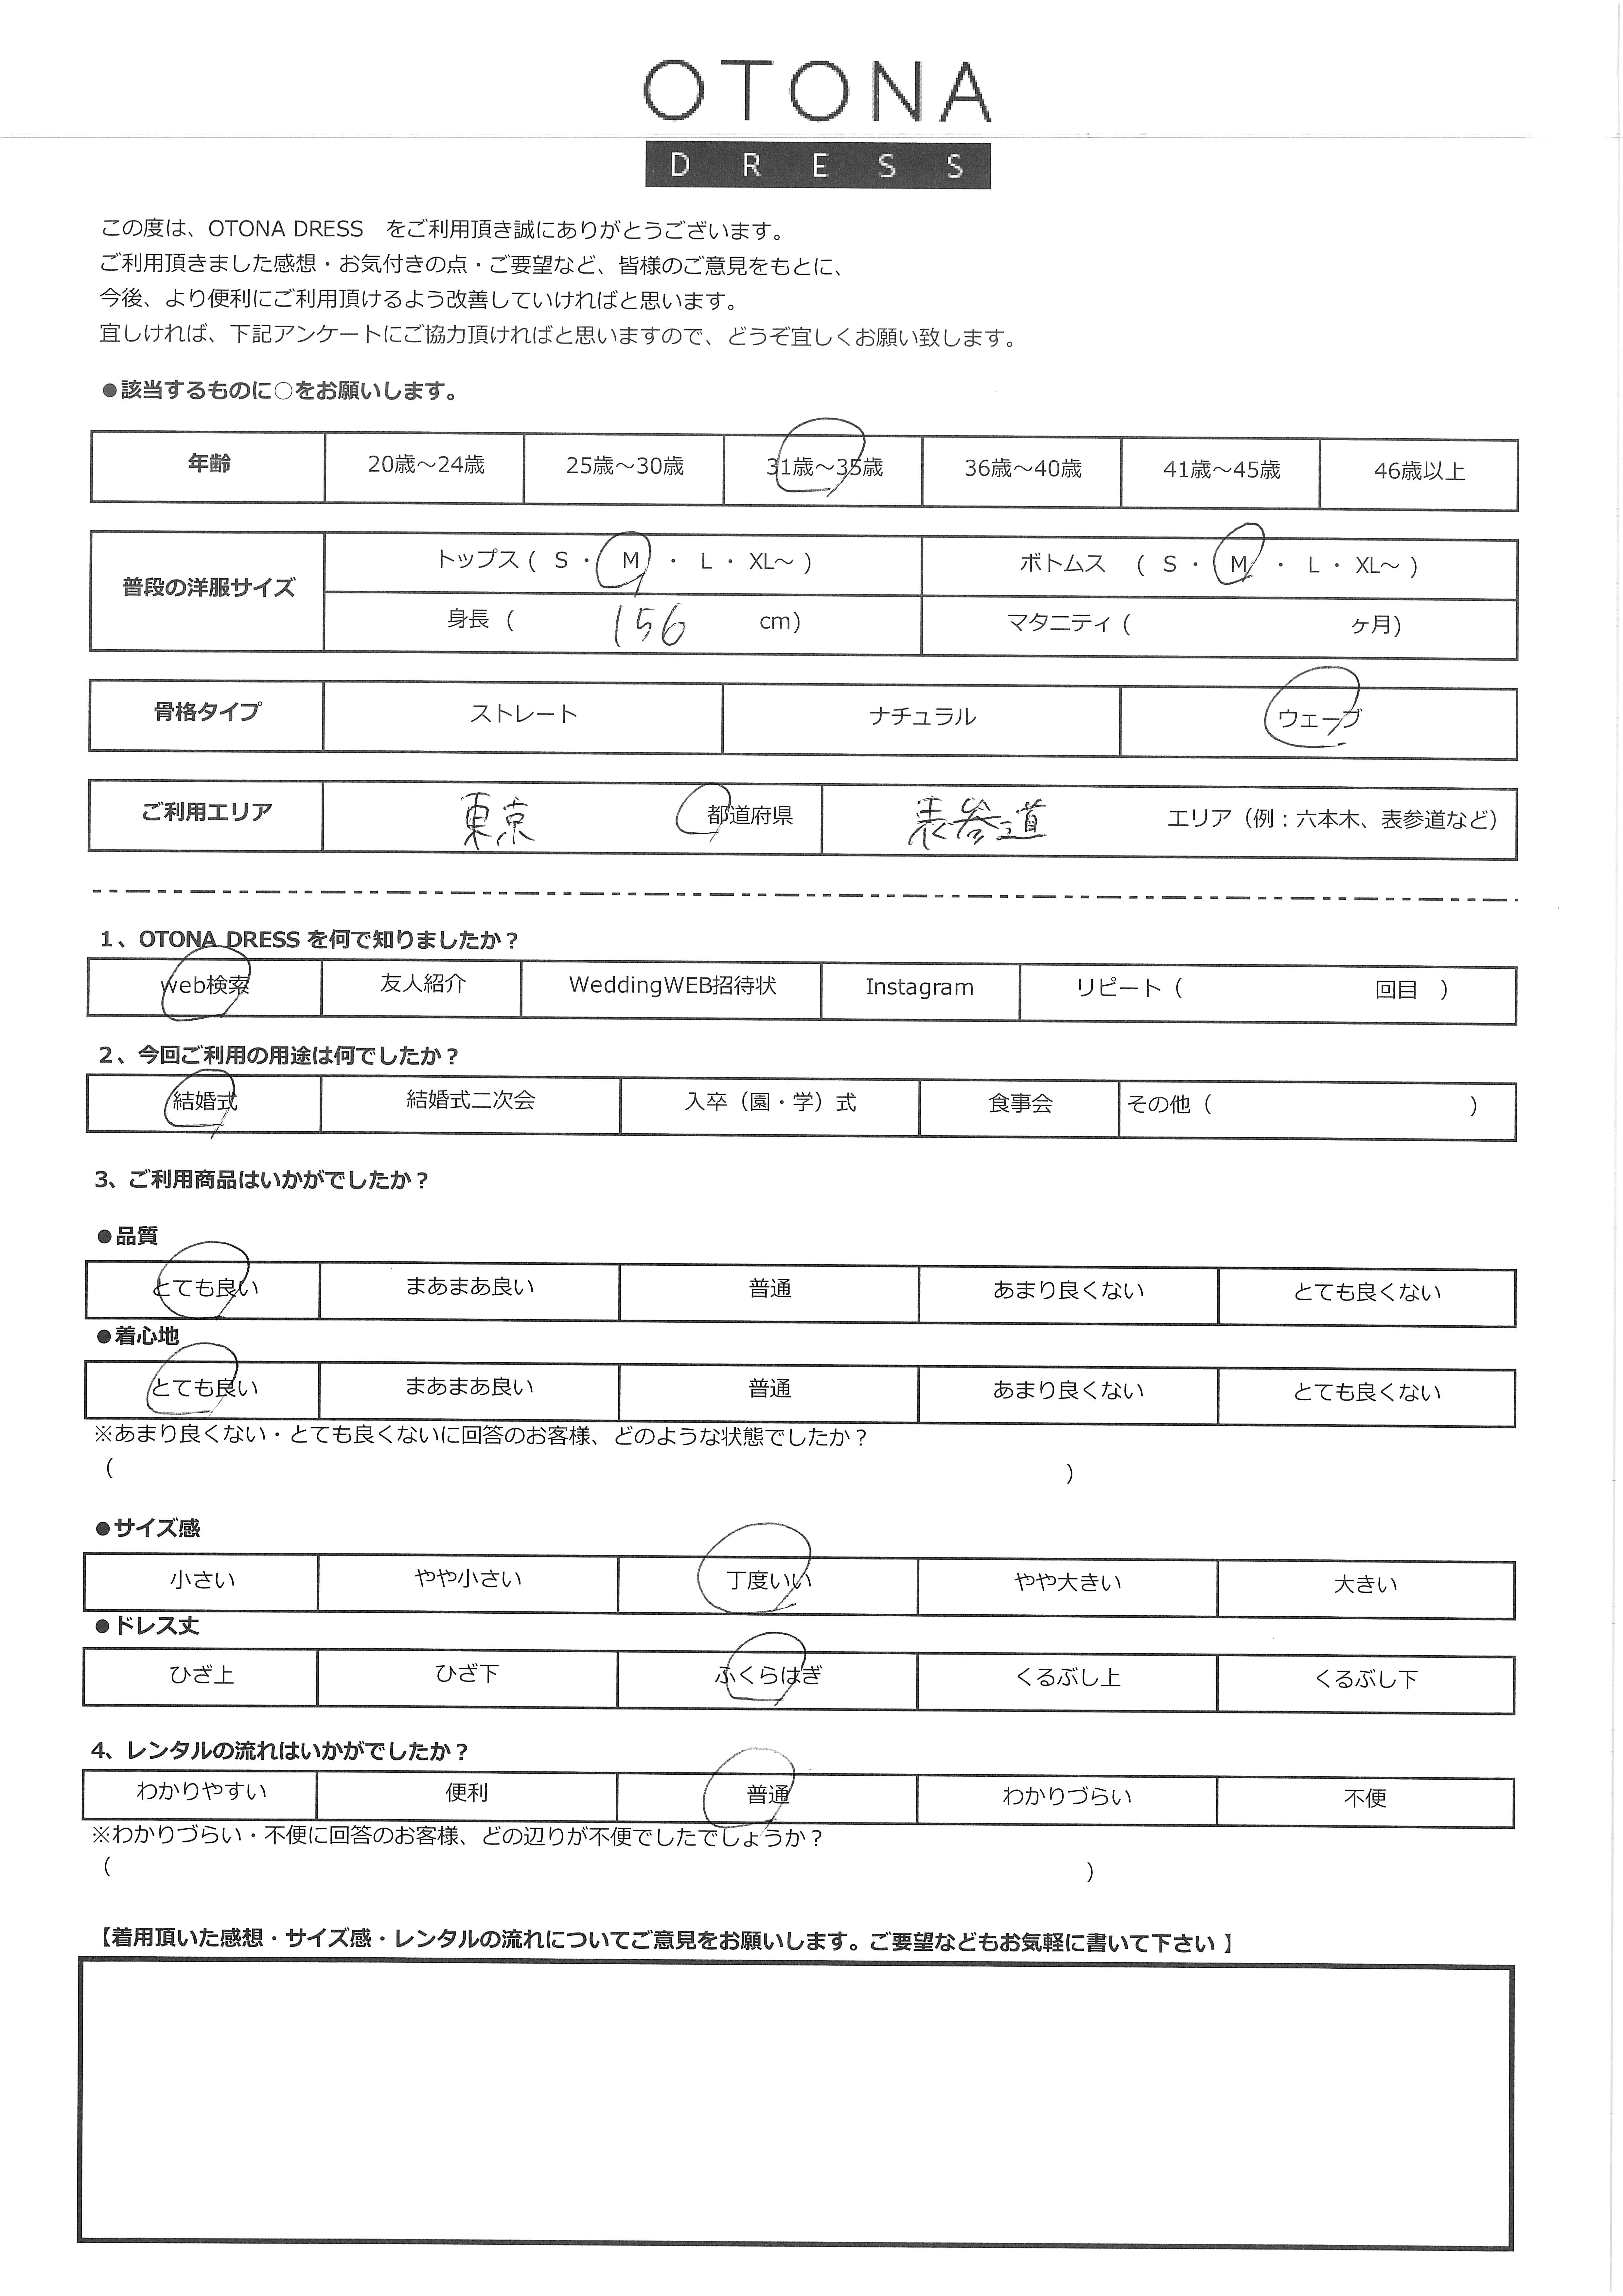 OTONA
DRESS
この度は、OTONA DRESS　をご利用頂き誠にありがとうございます。
ご利用頂きました感想・お気付きの点・ご要望など、皆様のご意見をもとに、
今後、より便利にご利用頂けるよう改善していければと思います。
宜しければ、下記アンケートにご協力頂ければと思いますので、どうぞ宜しくお願い致します。
●該当するものに○をお願いします。
年齢 20歳～24歳 25歳～30歳 31歳～35歳 36歳～40歳 41歳～45歳 46歳以上
普段の洋服サイズ トップス ( S ・ M ・ L ・ XL～ ) ボトムス ( S ・ M ・ L ・ XL～ )
身長 ( 156 cm) マタニティ ( ヶ月)
骨格タイプ ストレート ナチュラル ウェーブ
ご利用エリア 東京 都道府県 表参道 エリア（例：六本木、表参道など）
1、OTONA DRESS を何で知りましたか？
web検索 友人紹介 WeddingWEB招待状 Instagram リピート（ 回目 ）
2、今回ご利用の用途は何でしたか？
結婚式 結婚式二次会 入卒（園・学）式 食事会 その他（ ）
3、ご利用商品はいかがでしたか？
●品質
とても良い まあまあ良い 普通 あまり良くない とても良くない
●着心地
とても良い まあまあ良い 普通 あまり良くない とても良くない
※あまり良くない・とても良くないに回答のお客様、どのような状態でしたか？
（ ）
●サイズ感
小さい やや小さい 丁度いい やや大きい 大きい
●ドレス丈
ひざ上 ひざ下 ふくらはぎ くるぶし上 くるぶし下
4、レンタルの流れはいかがでしたか？
わかりやすい 便利 普通 わかりづらい 不便
※わかりづらい・不便に回答のお客様、どの辺りが不便でしたでしょうか？
（ ）
【着用頂いた感想・サイズ感・レンタルの流れについてご意見をお願いします。ご要望などもお気軽に書いて下さい 】